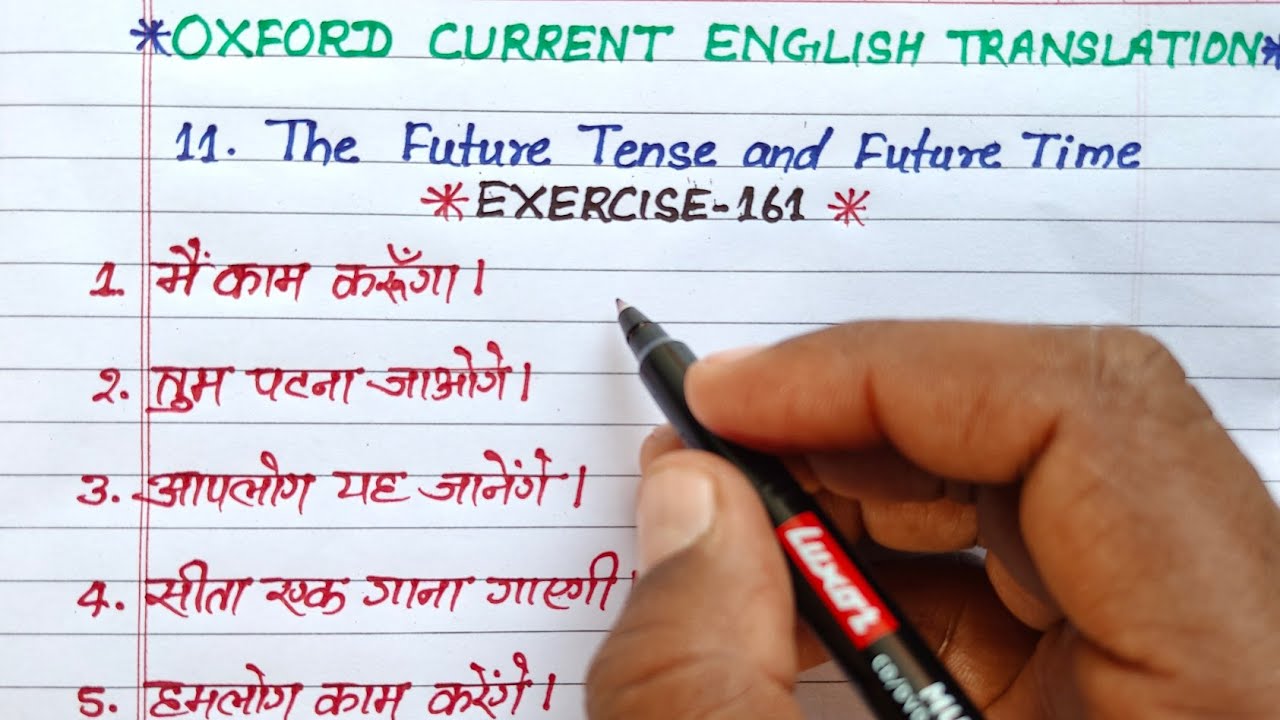 *OXFORD CURRENT ENGLISH TRANSLATION*
11. The Future Tense and Future Time
*EXERCISE-161*
1. मैं काम करूँगा।
2. तुम पटना जाओगे।
3. आपलोग यह जानेंगे।
4. सीता एक गाना गाएगी।
5. हमलोग काम करेंगे।
Luxor